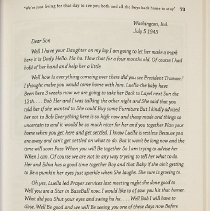 "We're just living for that day to see you both and all the boys back home to stay" 73
Washington, Ind.
July 5 1945
Dear Son
Well I have your Daughter on my lap I am going to let her make a mark
here it is Dady Hello. Ha ha. How that for a four months old. Of course I had
hold of her hand and help her a little
Well how is everything coming over there did you see President Truman?
I thought maybe you would come home with him. Luella the baby have
Been here 3 weeks now we are going to take her Back to Lapel next Sun the
15th. Bob Her and I was talking the other night and She said that you
told her that if she wanted to She could buy the furniture But I kindly advised
her not to Bob Everything here is so high now and shoes meat and things so
uncertain to and it would be so much nicer for her and you together Pick your
home when you get here and get settled. I know Luella is restless Because you
are away and cant get settled on what to do. But it wont be long now and the
time will soon Pass When you will Be together So I am trying to advise her
When I can. Of course we are not in any way trying to tell her what to do
Her and Silva has a good time together Boy and that Baby if she aint getting
to Be a pumkin her eyes just sparkle when She laughs. She sure is growing to.
Oh yes, Luella and Proper services last meeting night she done good to
Well you are a Star in Baseball now. I would like to of saw you hit that homer.
What did you Shut your eyes and swing ha ha. Well Bob I will have to
close, Well Be good and we will Be seeing you one of these days now Before